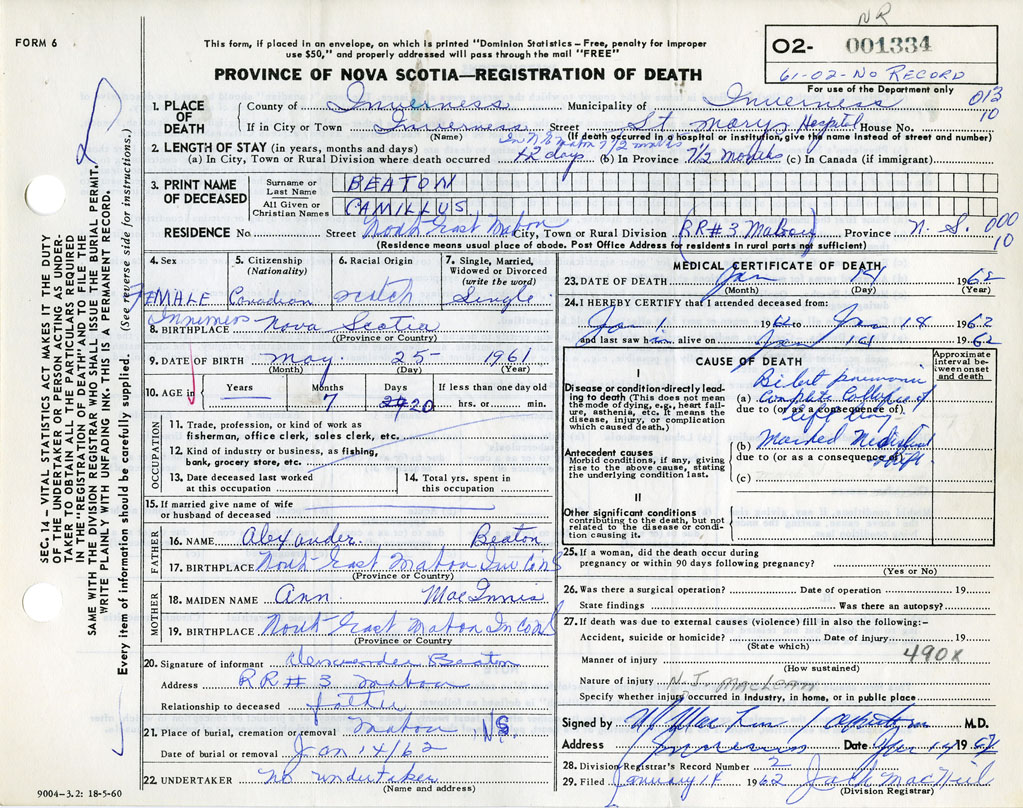 NR
FORM 6
This form, if placed in an envelope, on which is printed "Dominion Statistics – Free, penalty for improper
use $50," and properly addressed will pass through the mail "FREE"
O2- 001334
61-02-No Record
For use of the Department only
PROVINCE OF NOVA SCOTIA—REGISTRATION OF DEATH
013
10
1. PLACE OF DEATH
County of Inverness Municipality of Inverness
If in City or Town Inverness Street St Marys Hospital House No.
(Name) (If death occurred in a hospital or institution, give the name instead of street and number)
2. LENGTH OF STAY (in years, months and days)
In N.E Mabou 7 1/2 months
(a) In City, Town or Rural Division where death occurred 42 days (b) In Province 7 1/2 months (c) In Canada (if immigrant)
3. PRINT NAME OF DECEASED
Surname or Last Name BEATON
All Given or Christian Names CAMILLUS
RESIDENCE No. Street North East Mabou City, Town or Rural Division (RR#3 Mabou) Province N. S. 000
10
(Residence means usual place of abode. Post Office Address for residents in rural parts not sufficient)
4. Sex
MALE
5. Citizenship (Nationality)
Canadian
6. Racial Origin
Scotch
7. Single, Married, Widowed or Divorced (write the word)
Single
8. BIRTHPLACE Inverness Nova Scotia
(Province or Country)
9. DATE OF BIRTH May 25 1961
(Month) (Day) (Year)
10. AGE in Years Months 7 Days 20 If less than one day old hrs. or min.
OCCUPATION
11. Trade, profession, or kind of work as
fisherman, office clerk, sales clerk, etc.
12. Kind of industry or business, as fishing,
bank, grocery store, etc.
13. Date deceased last worked
at this occupation
14. Total yrs. spent in
this occupation
15. If married give name of wife
or husband of deceased
FATHER
16. NAME Alexander Beaton
17. BIRTHPLACE North East Mabou Inv Co NS
(Province or Country)
MOTHER
18. MAIDEN NAME Ann MacInnis
19. BIRTHPLACE North East Mabou In Co NS
(Province or Country)
20. Signature of informant Alexander Beaton
Address RR#3 Mabou
Relationship to deceased father
21. Place of burial, cremation or removal Mabou NS
Date of burial or removal Jan 14/62
22. UNDERTAKER No undertaker
(Name and address)
9004–3.2: 18-5-60
MEDICAL CERTIFICATE OF DEATH
23. DATE OF DEATH Jan 14 1962
(Month) (Day) (Year)
24. I HEREBY CERTIFY that I attended deceased from:
Jan 1 1962 to Jan 14 1962
and last saw him alive on Jan 14 1962
CAUSE OF DEATH
Approximate interval between onset and death
I
Disease or condition directly leading to death (This does not mean the mode of dying, e.g., heart failure, asthenia, etc. It means the disease, injury, or complication which caused death.)
(a) Bilat pneumonia
Complete collapse of
due to (or as a consequence of)
left lung
Antecedent causes
Morbid conditions, if any, giving rise to the above cause, stating the underlying condition last.
(b) Marked Mediastinal
shift
due to (or as a consequence of)
(c)
II
Other significant conditions
contributing to the death, but not related to the disease or condition causing it.
25. If a woman, did the death occur during
pregnancy or within 90 days following pregnancy?
(Yes or No)
26. Was there a surgical operation? Date of operation 19
State findings Was there an autopsy?
27. If death was due to external causes (violence) fill in also the following:–
Accident, suicide or homicide? Date of injury 19
(State which)
490X
Manner of injury
(How sustained)
Nature of injury N. J. MacLean
Specify whether injury occurred in Industry, in home, or in public place
Signed by N J MacLean M.D.
Address Inverness Date Jan 14 1962
28. Division Registrar's Record Number 2
29. Filed January 18 1962 Jack MacNeil
(Division Registrar)
SEC. 14 – VITAL STATISTICS ACT MAKES IT THE DUTY
OF THE UNDERTAKER OR PERSON ACTING AS UNDERTAKER
TO OBTAIN ALL THE PARTICULARS REQUIRED
IN THE "REGISTRATION OF DEATH" AND TO FILE THE
SAME WITH THE DIVISION REGISTRAR WHO SHALL ISSUE THE BURIAL PERMIT.
WRITE PLAINLY WITH UNFADING INK. THIS IS A PERMANENT RECORD.
Every item of information should be carefully supplied. (See reverse side for instructions.)